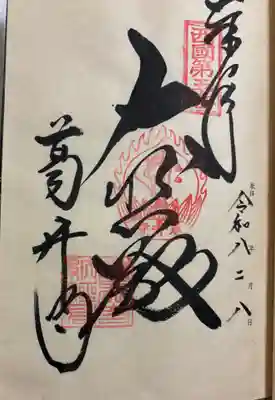 奉拝
西國第五番
大悲殿
葛井寺
令和八年二月八日